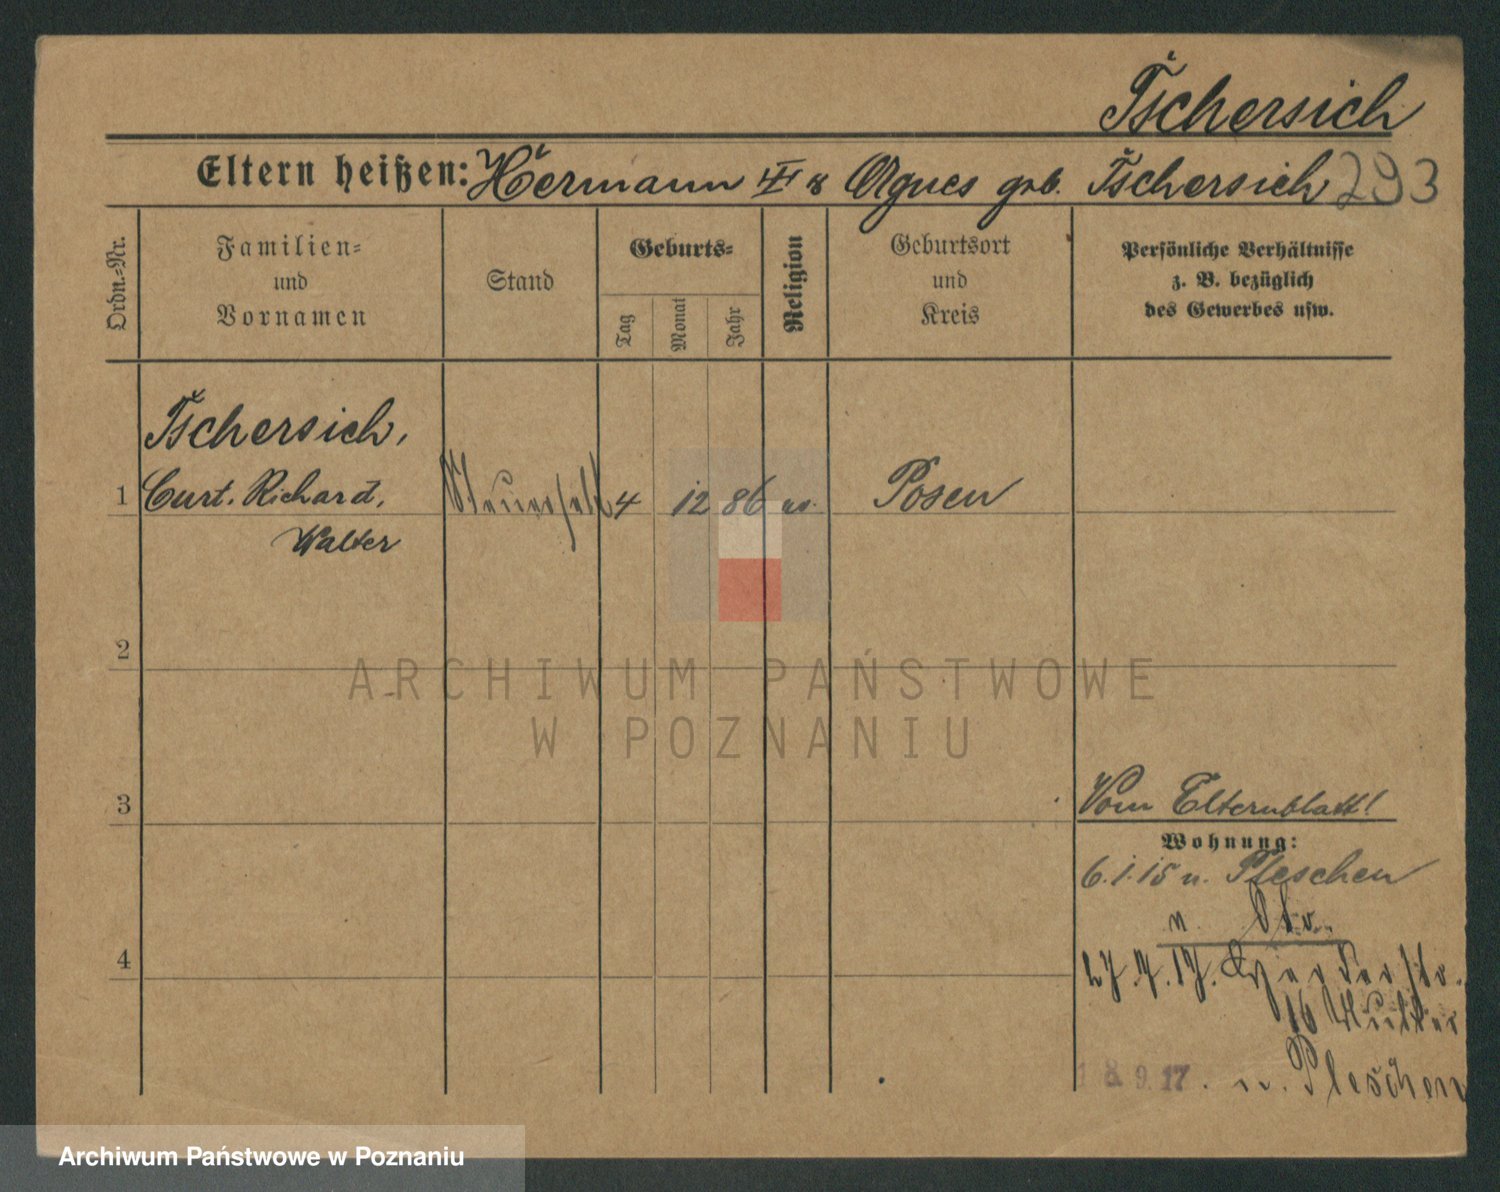 Tschersich
Eltern heißen: Hermann III & Agnes geb. Tschersich 293
Ordn.-Nr.
Familien-
und
Vornamen
Stand
Geburts-
Tag
Monat
Jahr
Religion
Geburtsort
und
Kreis
Persönliche Verhältnisse
z. B. bezüglich
des Gewerbes usw.
Tschersich,
1 Curt, Richard, 4 12 86 ev. Posen
Walter
2
ARCHIWUM PAŃSTWOWE
W POZNANIU
3
Vom Elternblatt!
Wohnung:
6.1.15 n. Pleschen
4
16 Mutter
18.9.17. n. Pleschen
Archiwum Państwowe w Poznaniu